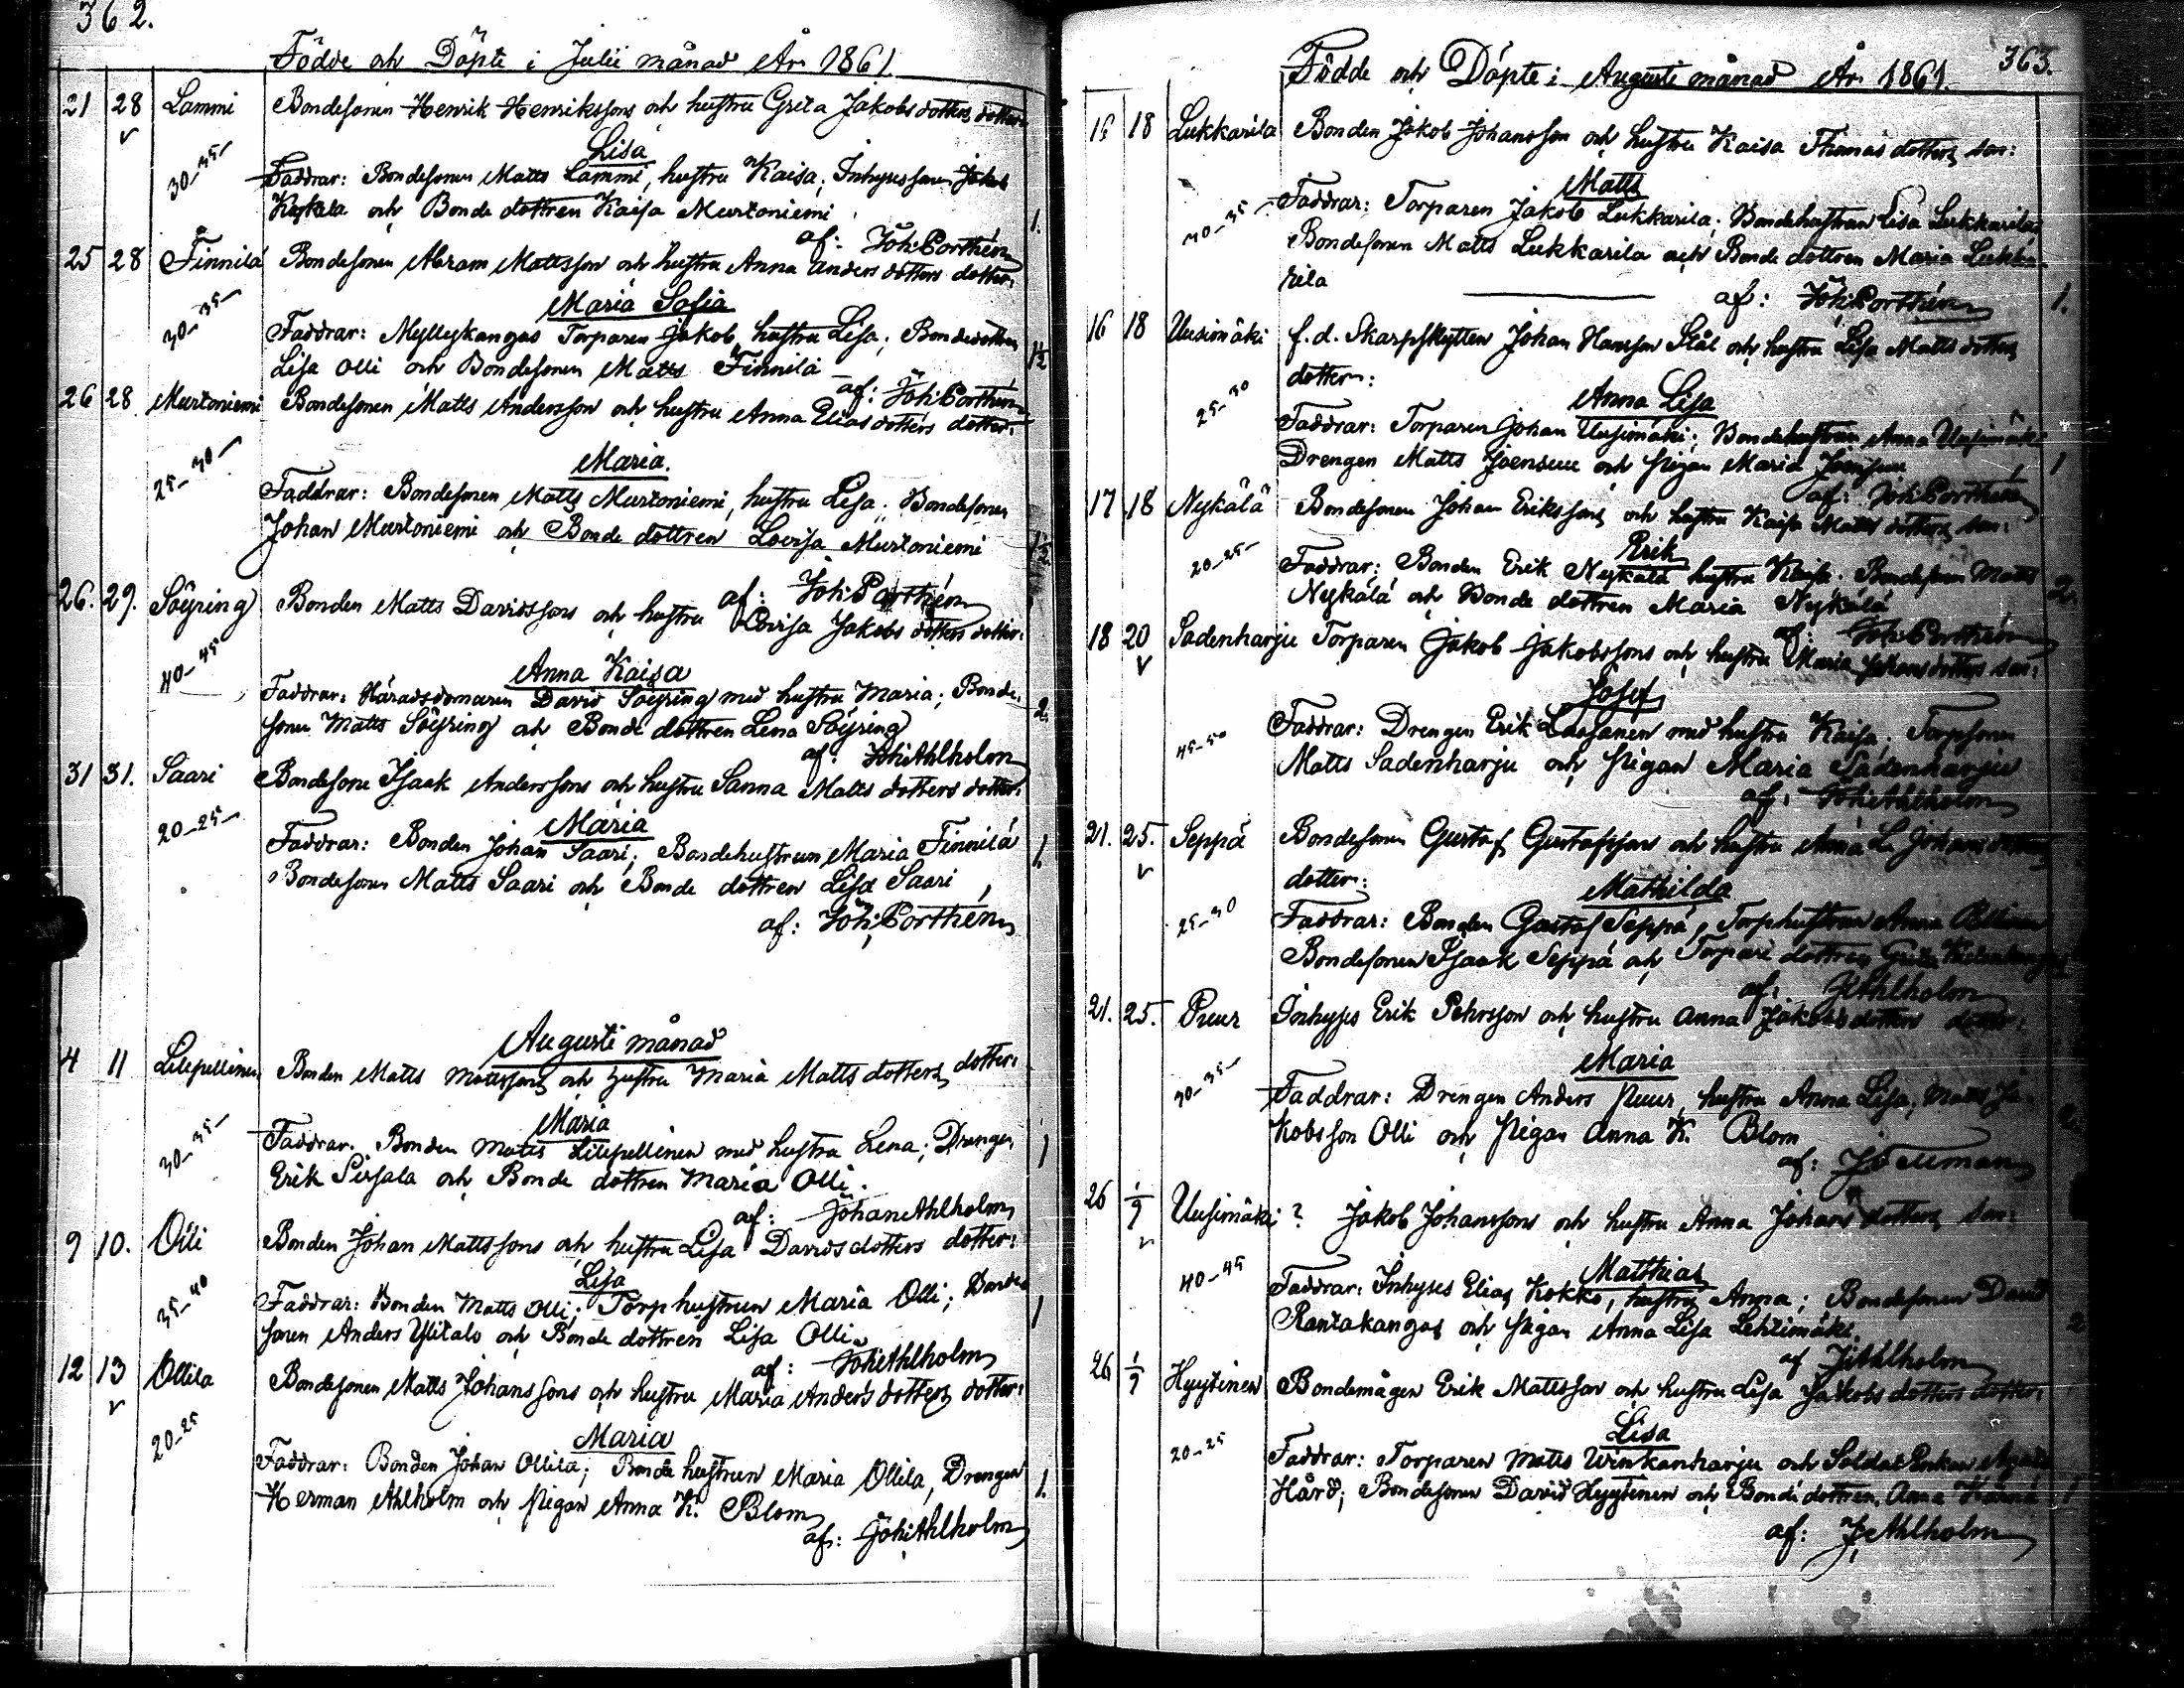 362.
Födde och Döpte i Julii månad År 1861
21 28 Lammi Bondesonen Henrik Henrikssons och hustru Greta Jakobsdotters dotter
Lisa
30-35
Faddrar: Bondesonen Matts Lammi, hustru Kaisa; Inhysessonen Jakob
och Bonde dottren Kaisa Murtoniemi 1.
af: Joh: Porthén
25 28 Finnilä Bondesonen Abram Mattsson och hustru Anna Anders dotters dotter:
Maria Sofia
30-35
Faddrar: Myllykangas Torparen Jakob, hustru Lisa; Bondedottren
Lisa Olli och Bondesonen Matts Finnilä 1½
af: Joh: Porthén
26 28 Murtoniemi Bondesonen Matts Andersson och hustru Anna Elias dotters dotter:
Maria.
25-30
Faddrar: Bondesonen Matts Murtoniemi, hustru Lisa; Bondesonen
Johan Murtoniemi och Bonde dottren Lovisa Murtoniemi 1½
af: Joh: Porthén
26. 29. Söyring Bonden Matts Davidssons och hustru Lovisa Jakobs dotters dotter:
40-45
Anna Kaisa
Faddrar: Häradsdomaren David Söyring med hustru Maria; Bonde
sonen Matts Söyring och Bonde dottren Lena Söyring 2.
af: Joh: Ahlholm
31 31. Saari Bondesone Isaak Anderssons och hustru Sanna Matts dotters dotter:
Maria
20-25
Faddrar: Bonden Johan Saari; Bondehustrun Maria Finnilä 1.
Bondesonen Matts Saari och Bonde dottren Lisa Saari
af: Joh: Porthén
Augusti månad
4 11 Lillpellinen Bonden Matts Mattssons och hustru Maria Matts dotters dotter:
Maria
30-35
Faddrar. Bonden Matts Lillpellinen med hustru Lena; Drengen 1
Erik Sirjala och Bonde dottren Maria Olli.
af: Johan Ahlholm
9 10. Olli Bonden Johan Mattssons och hustru Lisa Davids dotters dotter:
Lisa
35-40
Faddrar: Bonden Matts Olli; Torphustrun Maria Olli; Bonde 1
sonen Anders Ylitalo och Bonde dottren Lisa Olli
af: Joh: Ahlholm
12 13 Ollila Bondesonen Matts Johanssons och hustru Maria Anders dotters dotter:
Maria
20-25
Faddrar: Bonden Johan Ollila; Bonde hustrun Maria Ollila, Drengen 1.
Herman Ahlholm och Pigan Anna K. Blom
af: Joh: Ahlholm
363.
Födde och Döpte i Augusti månad År 1861.
16 18 Lukkarila Bonden Jakob Johansson och hustru Kaisa Thomas dotters son:
Matts
30-35
Faddrar: Torparen Jakob Lukkarila; Bondehustrun Lisa Lukkarila;
Bondesonen Matts Lukkarila och Bonde dottren Maria Lukka
rila
af: Joh: Porthén 1.
16 18 Uusimäki f.d. Skarpskytten Johan Hansson Stål och hustru Lisa Matts dotters
dotter:
Anna Lisa
25-30
Faddrar: Torparen Johan Uusimäki; Bondehustrun Anna Uusimäki
Drengen Matts Joensuu och Pigan Maria 1
af: Joh: Porthén
17 18 Nykälä Bondesonen Johan Erikssons och hustru Kaisa Matts dotters son:
Erik
20-25
Faddrar: Bonden Erik Nykälä hustru Kaisa. Bondesonen Matts
Nykälä och Bonde dottren Maria Nykälä 2.
af: Joh: Porthén
18 20 Sadenharju Torparen Jakob Jakobssons och hustru Maria Johans dotters son:
Josef
45-50
Faddrar: Drengen Erik Laasanen med hustru Kaisa. Torpsonen
Matts Sadenharju och Pigan Maria Sadenharju
af: Joh: Ahlholm
21. 25. Seppä Bondesonen Gustaf Gustafsson och hustru Anna L. Johans dotters
dotter:
Mathilda
25-30
Faddrar: Bonden Gustaf Seppä, Torphustrun Anna
Bondesonen Isaak Seppä och Torpare dottren Greta
af: J Ahlholm
21. 25. Puur Inhyses Erik Pehrsson och hustru Anna Jakobs dotters dotter:
Maria
30-35
Faddrar: Drengen Anders Puur, hustru Anna Lisa; Matts Ja
kobsson Olli och Pigan Anna K. Blom
af:
26 1/9 Uusimäki ? Jakob Johanssons och hustru Anna Johans dotters son:
Matthias
40-45
Faddrar: Inhyses Elias Kokko, hustru Anna; Bondesonen David
Rantakangas och Pigan Anna Lisa Lehtimäki. 2
af J Ahlholm
26 1/9 Hyytinen Bondemågen Erik Mattsson och hustru Lisa Jakobs dotters dotter:
Lisa
20-25
Faddrar: Torparen Matts Winkanharju och Soldat Enkan
Hård; Bondesonen David Hyytinen och Bonde dottren Anna 1
af: J Ahlholm